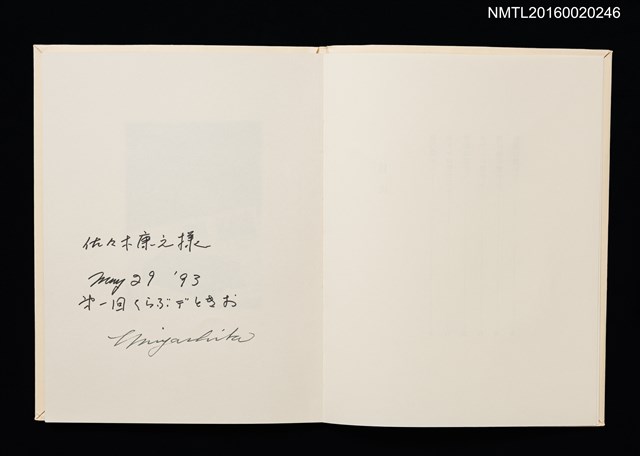 NMTL20160020246
佐々木康之様
May 29 '93
第一回くらぶでときお
Miyashita